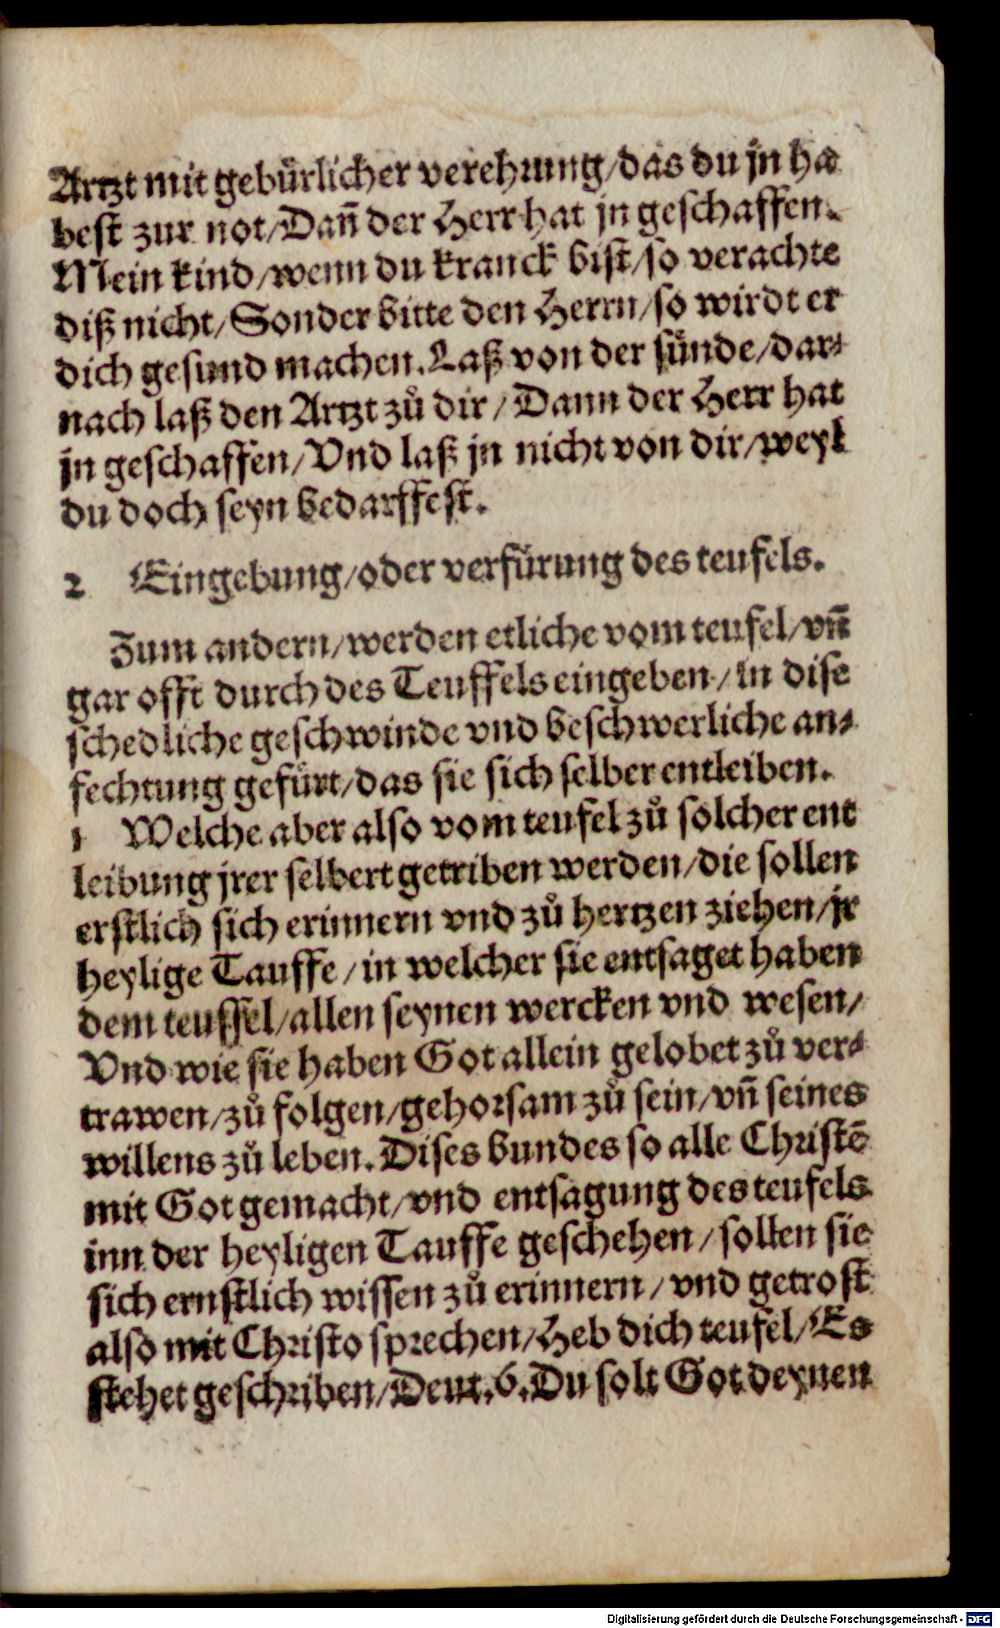 Artzt mit gebürlicher verehrung/das du jn ha
best zur not/Dañ der Herr hat jn geschaffen.
Mein kind/wenn du kranck bist/so verachte
diß nicht/Sonder bitte den Herrn/so wirdt er
dich gesund machen.Laß von der sünde/dar⸗
nach laß den Artzt zů dir/Dann der Herr hat
jn geschaffen/Vnd laß jn nicht von dir/weyl
du doch seyn bedarffest.
2 Eingebung/oder verfürung des teufels.
Zum andern/werden etliche vom teufel/vñ
gar offt durch des Teuffels eingeben/in dise
schedliche geschwinde vnd beschwerliche an⸗
fechtung gefürt/das sie sich selber entleiben.
1 Welche aber also vom teufel zů solcher ent
leibung jrer selbert getriben werden/die sollen
erstlich sich erinnern vnd zů hertzen ziehen/jr
heylige Tauffe/in welcher sie entsaget haben
dem teuffel/allen seynen wercken vnd wesen/
Vnd wie sie haben Got allein gelobet zů ver⸗
trawen/zů folgen/gehorsam zů sein/vñ seines
willens zů leben.Dises bundes so alle Christē
mit Got gemacht/vnd entsagung des teufels
inn der heyligen Tauffe geschehen/sollen sie
sich ernstlich wissen zů erinnern/vnd getrost
also mit Christo sprechen/Heb dich teufel/Es
stehet geschriben/Deut.6.Du solt Got deynen
Digitalisierung gefördert durch die Deutsche Forschungsgemeinschaft - DFG